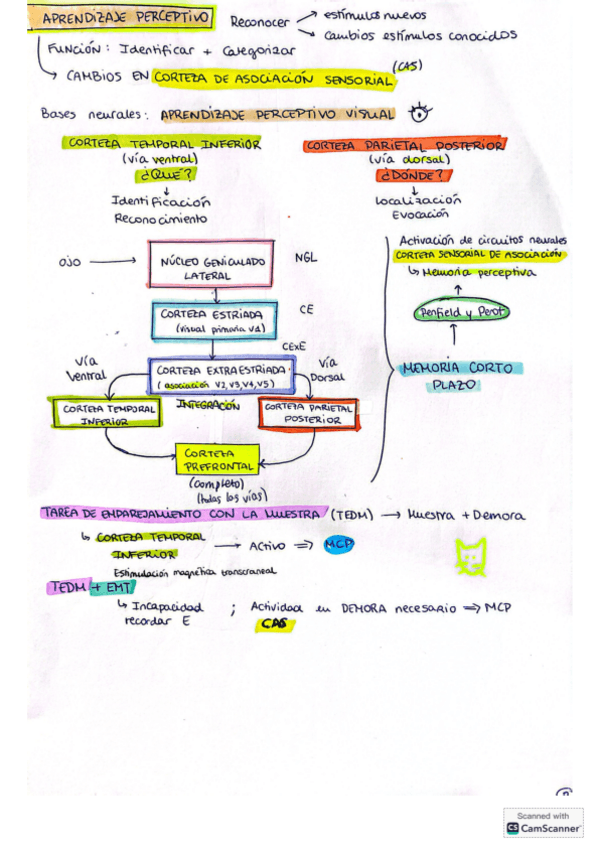 APRENDIZAJE PERCEPTIVO Reconocer → estímulos nuevos
→ cambios estímulos conocidos
FUNCIÓN: Identificar + categorizar
→ CAMBIOS EN CORTEZA DE ASOCIACIÓN SENSORIAL (CAS)
Bases neurales: APRENDIZAJE PERCEPTIVO VISUAL
CORTEZA TEMPORAL INFERIOR
(vía ventral)
¿QUÉ?
↓
Identificación
Reconocimiento
CORTEZA PARIETAL POSTERIOR
(vía dorsal)
¿DÓNDE?
↓
Localización
Evocación
OJO → NÚCLEO GENICULADO
LATERAL
NGL
CORTEZA ESTRIADA
(visual primaria V1)
CE
CExE
CORTEZA EXTRAESTRIADA
(asociación V2,V3,V4,V5)
vía
Ventral
vía
Dorsal
INTEGRACIÓN
CORTEZA TEMPORAL
INFERIOR
CORTEZA PARIETAL
POSTERIOR
CORTEZA
PREFRONTAL
(completo)
(todas las vías)
Activación de circuitos neurales
CORTEZA SENSORIAL DE ASOCIACIÓN
↳ Memoria perceptiva
↑
Penfield y Perot
↑
MEMORIA CORTO
PLAZO
TAREA DE EMPAREJAMIENTO CON LA MUESTRA (TEDM) → Muestra + Demora
↳ CORTEZA TEMPORAL
INFERIOR → Activo ⇒ MCP
Estimulación magnética transcraneal
TEDM + EMT
↳ Incapacidad
recordar E
; Actividad en DEMORA necesario ⇒ MCP
CAS
Scanned with
CS CamScanner